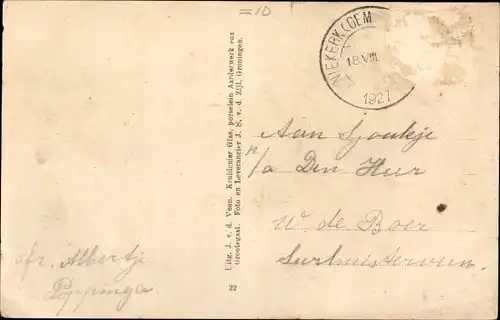 =10
NIEKERK (GEM
18 VIII
1927
Aan Sjoukje
p/a Den Heer
W de Boer
Surhuisterveen.
afz. Albertje
Poppinga
Uitg. J. v. d. Veen. Kruidenier Glas, porselein Aardewerk enz
Grootegast. Foto en Leverancier J. S. v. d. Zijl, Groningen.
22